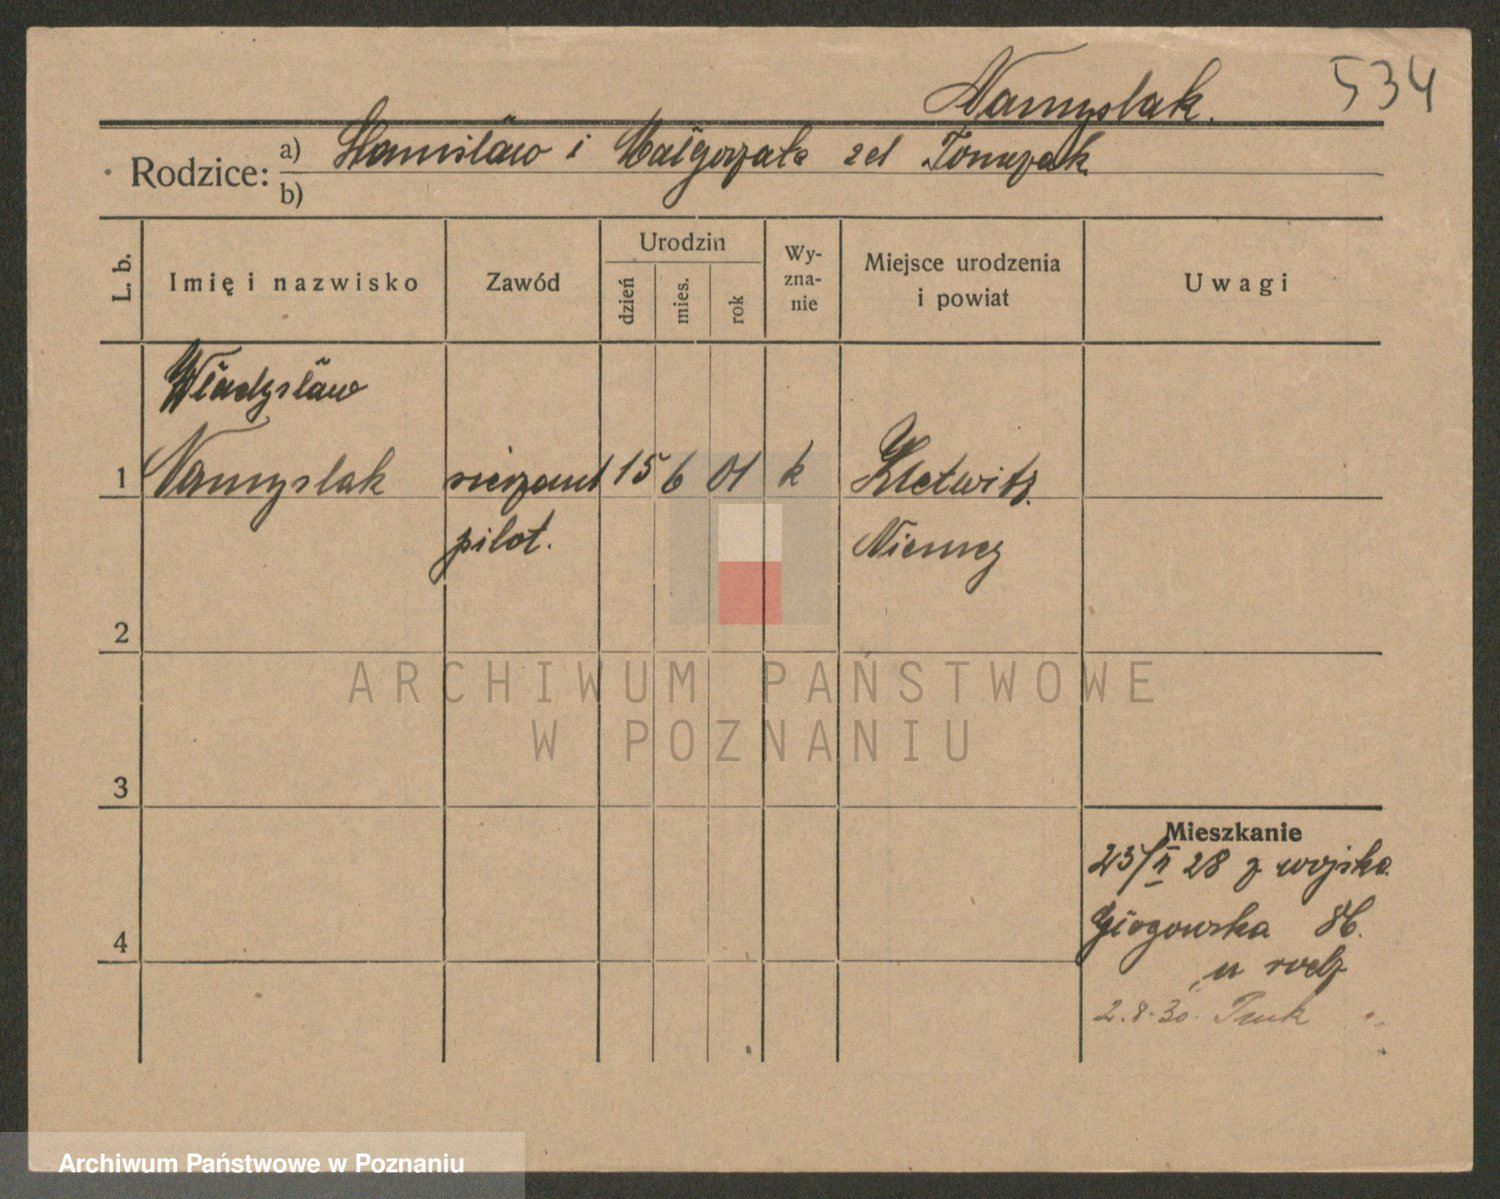 534
Namyslak.
Rodzice: a) Stanisław i Małgorzata
b)
L. b.
Imię i nazwisko
Zawód
Urodzin
dzień
mies.
rok
Wy-
zna-
nie
Miejsce urodzenia
i powiat
Uwagi
Władysław
1 Namyslak sierżant 15 6 01 k Kletwitz
pilot. Niemcy
2
3
4
Mieszkanie
23/II 28 z wojska
Głogowska 86.
u rodz
2.8.30.
ARCHIWUM PAŃSTWOWE
W POZNANIU
Archiwum Państwowe w Poznaniu